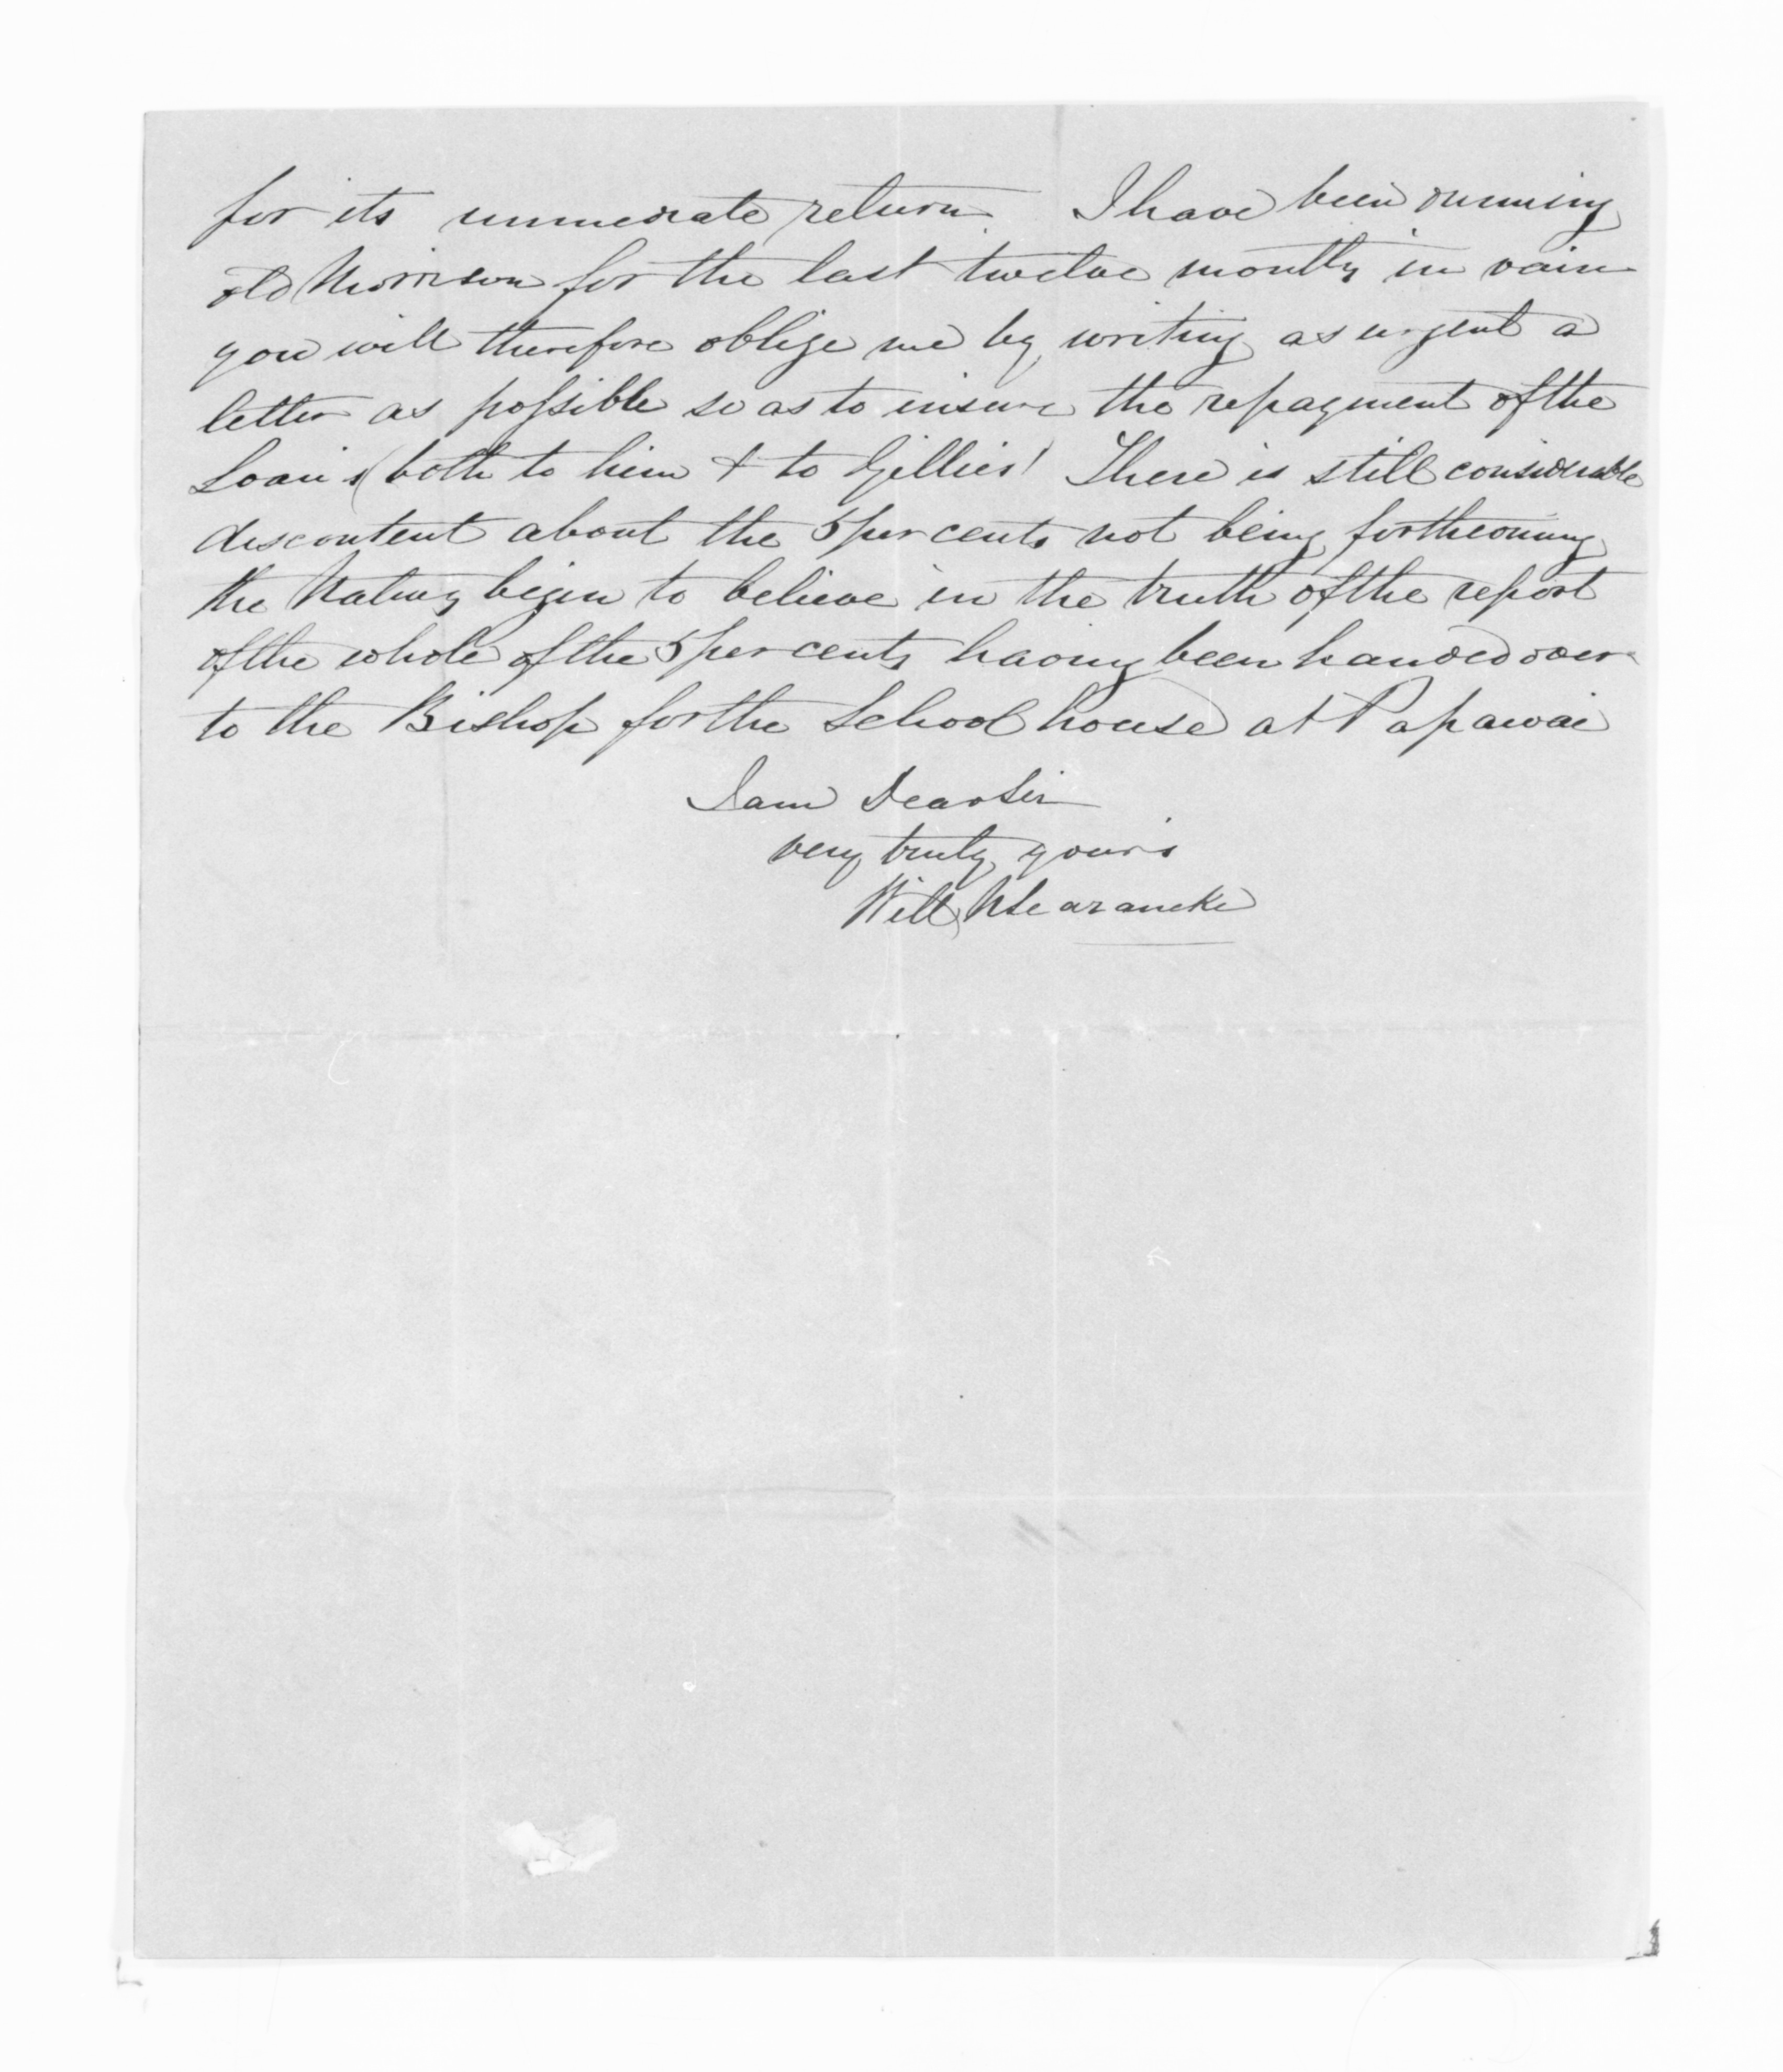 for its immediate return. I have been dunning
old Morrison for the last twelve months in vain
you will therefore oblige me by writing as urgent a
letter as possible so as to insure the repayment of the
Loans (both to him & to Gillies) There is still considerable
discontent about the 5 per cents not being forthcoming
the Natives begin to believe in the truth of the report
of the whole of the 5 per cents having been handed over
to the Bishop for the School house at Papawai
I am Dear Sir
very truly yours
Will